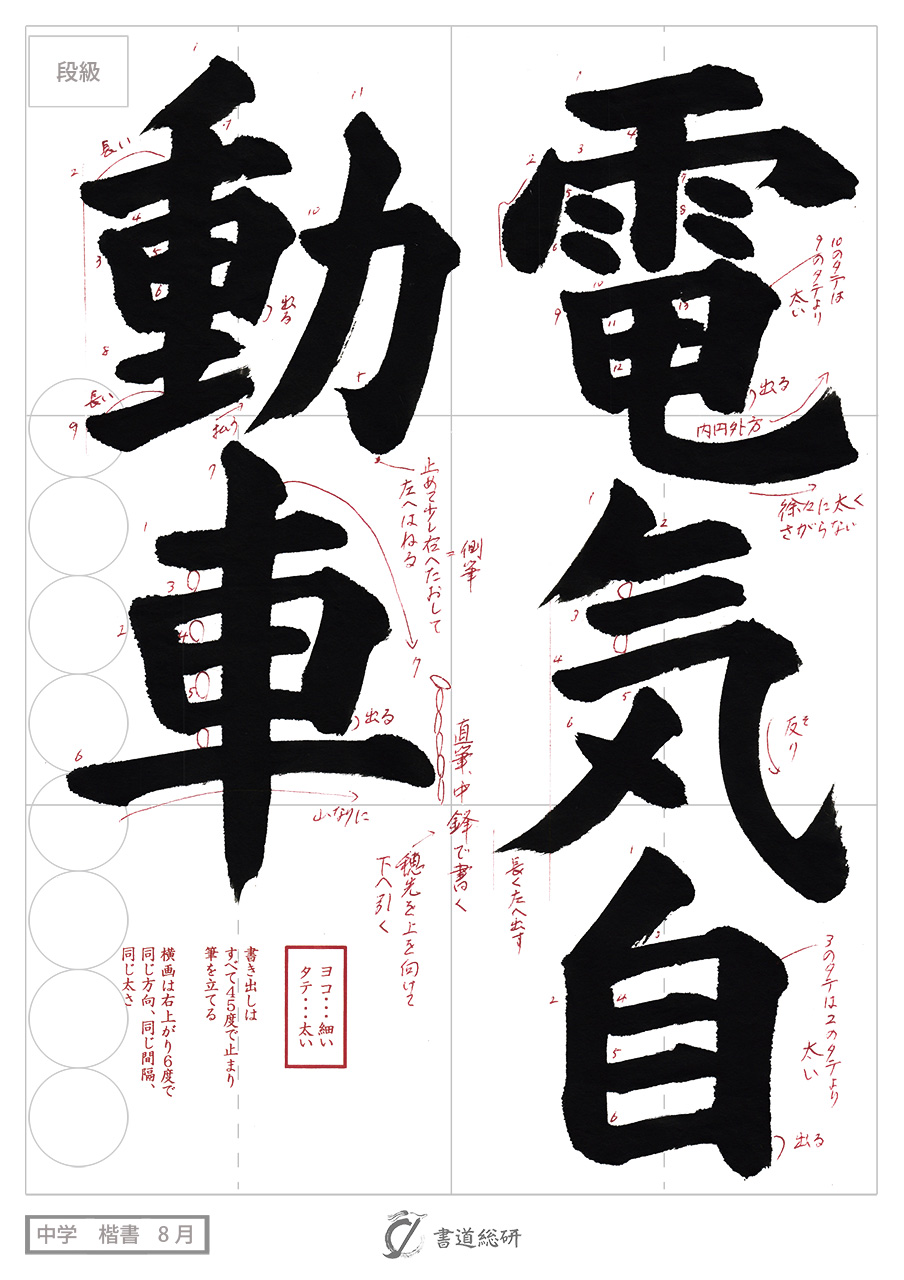 電気自
動車
段級
10のタテは
9のタテより
太い
出る
内円外方
徐々に太く
さがらない
反り
そ
長く左へ出す
3のタテは2のタテより
太い
出る
長い
出る
長い
払う
止めて少し右へたおして
左へはねる
=側筆
出る
山なりに
直筆、中鋒で書く
穂先を上を向けて
下へ引く
ヨコ・・・細い
タテ・・・太い
書き出しは
すべて45度で止まり
筆を立てる
横画は右上がり6度で
同じ方向、同じ間隔、
同じ太さ
中学 楷書 8月
書道総研